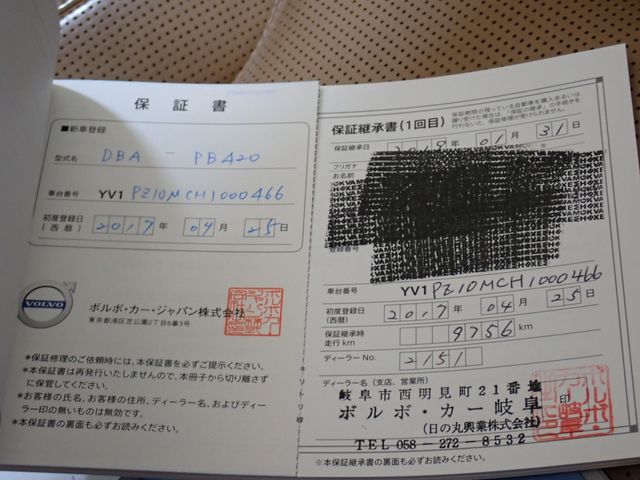 保証書
■新車登録
型式名 DBA - PB420
車台番号 YV1 PZ10MCH1000466
初度登録日(西暦) 2017年 04月 25日
VOLVO
ボルボ・カー・ジャパン株式会社
東京都港区芝公園2丁目6番3号
*保証修理のご依頼時には、本保証書を必ずご提示ください。
*本保証書は再発行いたしませんので、本冊子から切り離さずに保管してください。
*お客様の氏名、お客様の住所、ディーラー名、およびディーラー印の無いものは無効です。
*本保証書の裏面も必ずお読みください。
キリトリ線
保証継承書(1回目)
保証期間の残っている自動車を購入あるいは
譲り受けた場合は、「保証の継承」の手続きを
行わないと、保証修理が受けられません。
保証継承日 2019年 01月 31日
フリガナ
お名前
登録番号
車台番号 YV1 PZ10MCH1000466
初度登録日(西暦) 2017年 04月 25日
保証継承時走行km 9756 km
ディーラーNo. 2151
ディーラー名(支店、営業所)
岐阜市西明見町21番地
ボルボ・カー岐阜
(日の丸興業株式会社)
TEL 058-272-8532
印
※本保証継承書の裏面も必ずお読みください。